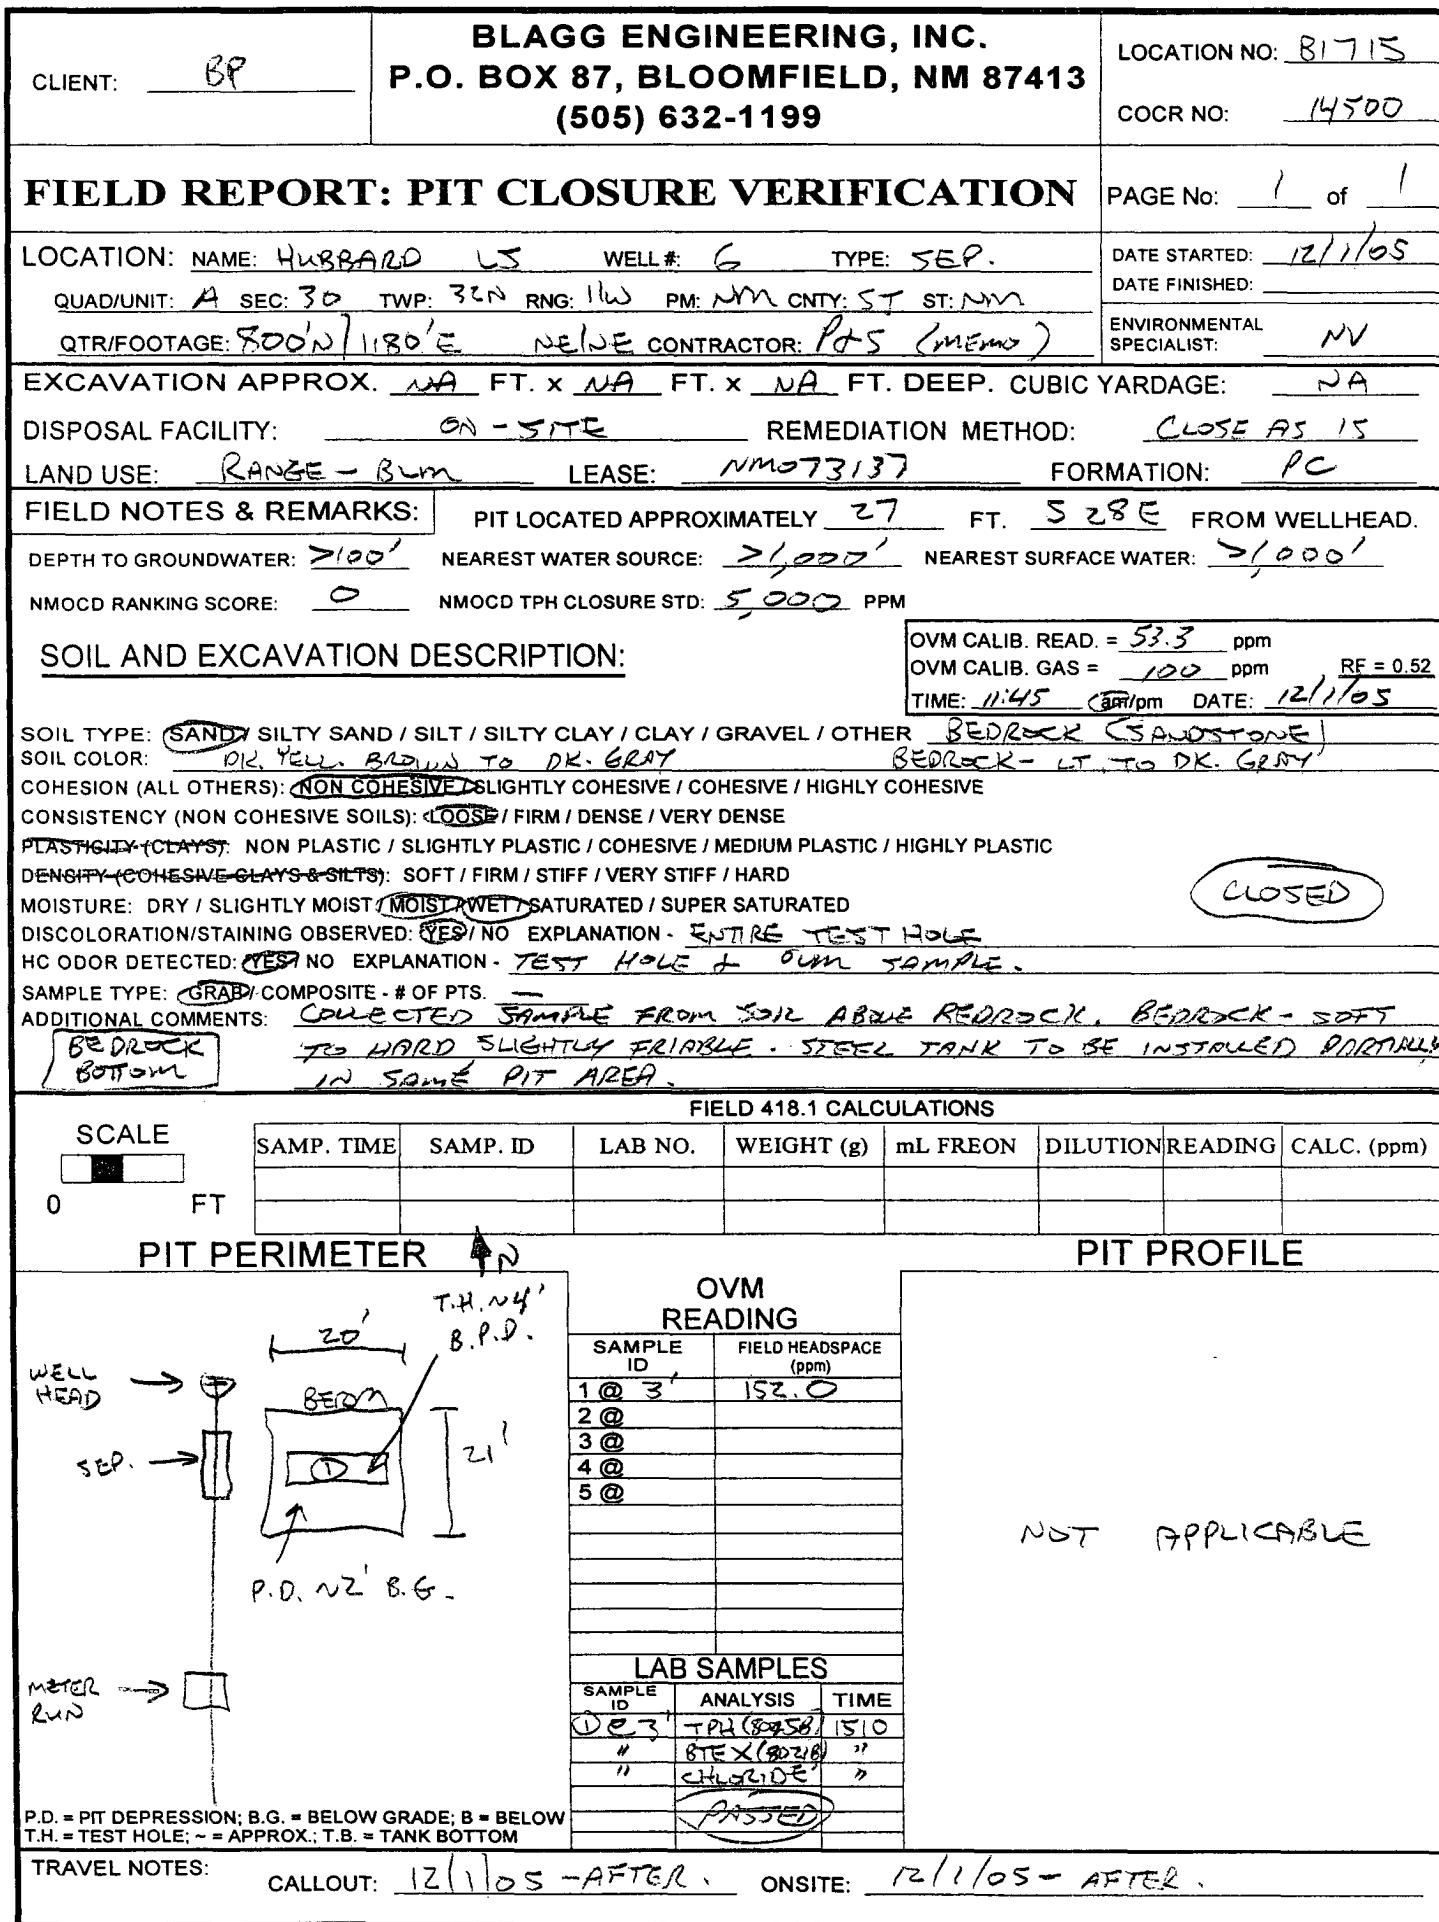 CLIENT: BP
BLAGG ENGINEERING, INC.
P.O. BOX 87, BLOOMFIELD, NM 87413
(505) 632-1199
LOCATION NO: B1715
COCR NO: 14500
FIELD REPORT: PIT CLOSURE VERIFICATION
PAGE No: 1 of 1
LOCATION: NAME: HUBBARD LS WELL #: 6 TYPE: SEP.
QUAD/UNIT: A SEC: 30 TWP: 32N RNG: 11W PM: NM CNTY: ST ST: NM
QTR/FOOTAGE: 800'N/1180'E NE/NE CONTRACTOR: P&S (MEMO)
DATE STARTED: 12/1/05
DATE FINISHED:
ENVIRONMENTAL SPECIALIST: NV
EXCAVATION APPROX. NA FT. x NA FT. x NA FT. DEEP. CUBIC YARDAGE: NA
DISPOSAL FACILITY: ON-SITE REMEDIATION METHOD: CLOSE AS IS
LAND USE: RANGE - BLM LEASE: NM073137 FORMATION: PC
FIELD NOTES & REMARKS: PIT LOCATED APPROXIMATELY 27 FT. S28E FROM WELLHEAD.
DEPTH TO GROUNDWATER: >100' NEAREST WATER SOURCE: >1,000' NEAREST SURFACE WATER: >1,000'
NMOCD RANKING SCORE: 0 NMOCD TPH CLOSURE STD: 5,000 PPM
SOIL AND EXCAVATION DESCRIPTION:
OVM CALIB. READ. = 53.3 ppm
OVM CALIB. GAS = 100 ppm RF = 0.52
TIME: 11:45 am/pm DATE: 12/1/05
SOIL TYPE: SAND / SILTY SAND / SILT / SILTY CLAY / CLAY / GRAVEL / OTHER BEDROCK (SANDSTONE)
SOIL COLOR: DK. YELL. BROWN TO DK. GRAY BEDROCK - LT. TO DK. GRAY
COHESION (ALL OTHERS): NON COHESIVE / SLIGHTLY COHESIVE / COHESIVE / HIGHLY COHESIVE
CONSISTENCY (NON COHESIVE SOILS): LOOSE / FIRM / DENSE / VERY DENSE
PLASTICITY (CLAYS): NON PLASTIC / SLIGHTLY PLASTIC / COHESIVE / MEDIUM PLASTIC / HIGHLY PLASTIC
DENSITY (COHESIVE CLAYS & SILTS): SOFT / FIRM / STIFF / VERY STIFF / HARD
MOISTURE: DRY / SLIGHTLY MOIST / MOIST / WET / SATURATED / SUPER SATURATED
CLOSED
DISCOLORATION/STAINING OBSERVED: YES / NO EXPLANATION - ENTIRE TEST HOLE
HC ODOR DETECTED: YES / NO EXPLANATION - TEST HOLE & OVM SAMPLE.
SAMPLE TYPE: GRAB / COMPOSITE - # OF PTS. —
ADDITIONAL COMMENTS: COLLECTED SAMPLE FROM SOIL ABOVE BEDROCK. BEDROCK - SOFT
TO HARD SLIGHTLY FRIABLE. STEEL TANK TO BE INSTALLED PARTIALLY
IN SAME PIT AREA.
BEDROCK
BOTTOM
FIELD 418.1 CALCULATIONS
SCALE
0 FT
SAMP. TIME SAMP. ID LAB NO. WEIGHT (g) mL FREON DILUTION READING CALC. (ppm)
PIT PERIMETER N
PIT PROFILE
T.H. ~4'
B.P.D.
20'
WELL
HEAD
BERM
21'
SEP.
1
P.D. ~2' B.G.
METER
RUN
OVM
READING
SAMPLE ID FIELD HEADSPACE (ppm)
1 @ 3' 152.0
2 @
3 @
4 @
5 @
NOT APPLICABLE
LAB SAMPLES
SAMPLE ID ANALYSIS TIME
1 @ 3' TPH (8015B) 1510
" BTEX (8021B) "
" CHLORIDE "
PASSED
P.D. = PIT DEPRESSION; B.G. = BELOW GRADE; B = BELOW
T.H. = TEST HOLE; ~ = APPROX.; T.B. = TANK BOTTOM
TRAVEL NOTES: CALLOUT: 12/1/05 - AFTER. ONSITE: 12/1/05 - AFTER.